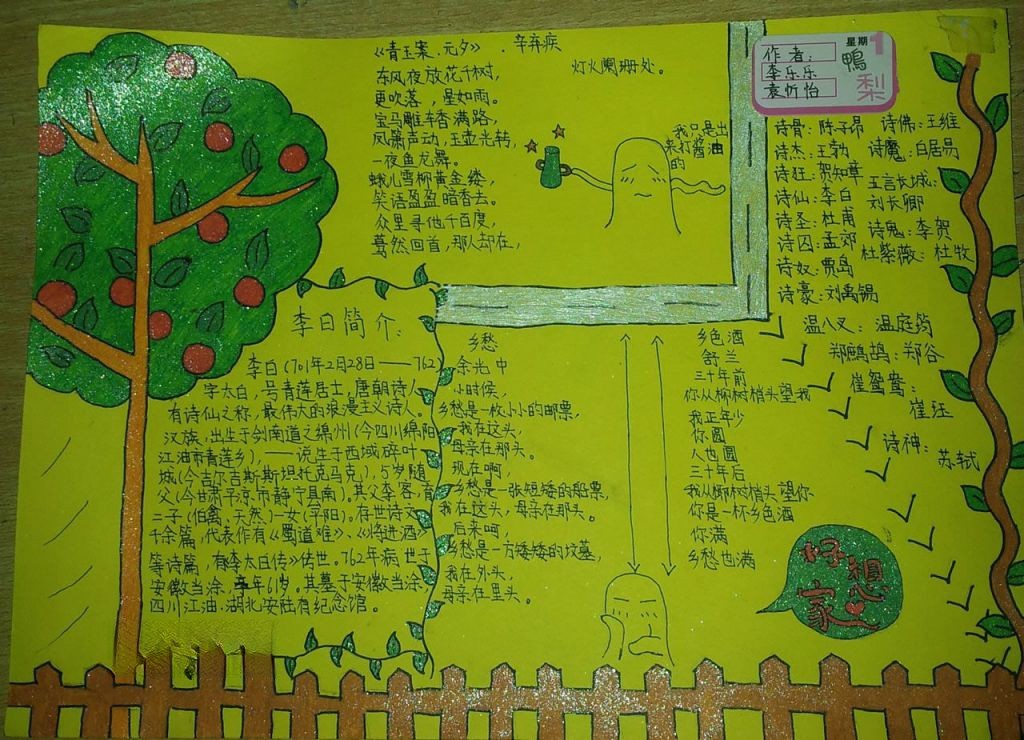 《青玉案.元夕》.辛弃疾
东风夜放花千树,
更吹落,星如雨。
宝马雕车香满路,
风箫声动,玉壶光转,
一夜鱼龙舞。
蛾儿雪柳黄金缕,
笑语盈盈暗香去。
众里寻他千百度,
蓦然回首,那人却在,
灯火阑珊处。
我只是出
来打酱油
的
星期1
作者:
李乐乐
袁忻怡
鴨
梨
诗骨:陈子昂
诗杰:王勃
诗狂:贺知章
诗仙:李白
诗圣:杜甫
诗囚:孟郊
诗奴:贾岛
诗豪:刘禹锡
诗佛:王维
诗魔:白居易
五言长城:
刘长卿
诗鬼:李贺
杜紫薇:杜牧
温八叉:温庭筠
郑鹧鸪:郑谷
崔鸳鸯:
崔珏
诗神:苏轼
李白简介:
李白(701年2月28日——762)
字太白,号青莲居士,唐朝诗人,
有诗仙之称,最伟大的浪漫主义诗人。
汉族,出生于剑南道之绵州(今四川绵阳
江油市青莲乡),一说生于西域碎叶
城(今吉尔吉斯斯坦托克马克),5岁随
父(今甘肃平凉市静宁县南)。其父李客,育
二子(伯禽、天然)一女(平阳)。存世诗文
千余篇,代表作有《蜀道难》、《将进酒》
等诗篇,有李太白传》传世。762年病世于
安徽当涂,享年61岁。其墓于安徽当涂,
四川江油.湖北安陆有纪念馆。
乡愁
余光中
小时候,
乡愁是一枚小小的邮票,
我在这头,
母亲在那头。
现在啊,
乡愁是一张短矮的船票,
我在这头,母亲在那头。
后来呵,
乡愁是一方矮矮的坟墓,
我在外头,
母亲在里头。
乡色酒
舒兰
三十年前
你从柳树梢头望我
我正年少
你圆
人也圆
三十年后
我从椰树梢头望你
你是一杯乡色酒
你满
乡愁也满
好想
家